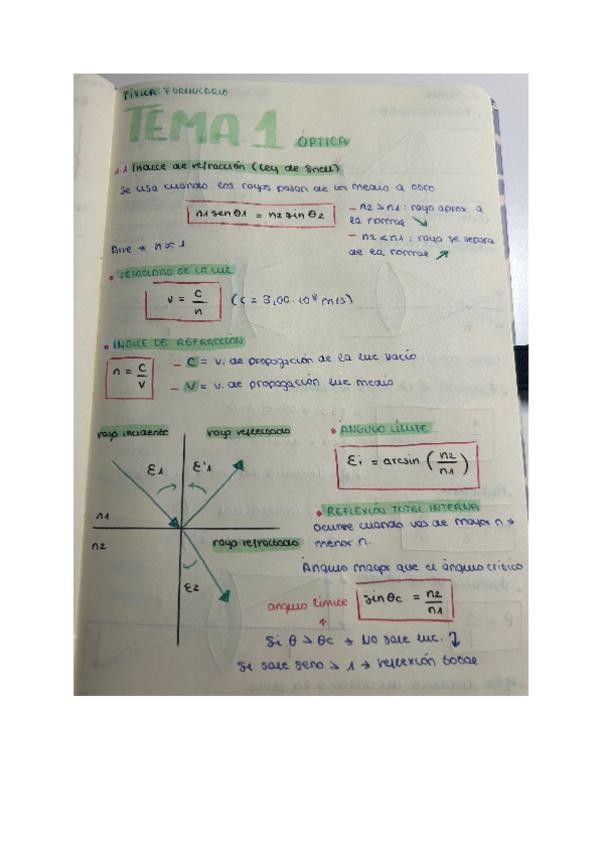 FÍSICA FORMULARIO
TEMA 1 ÓPTICA
1.1 Índice de refracción (Ley de Snell)
Se usa cuando los rayos pasan de un medio a otro
n1 sen θ1 = n2 sin θ2
— n2 > n1 : rayo aprox. a
la normal ↘
— n2 < n1 : rayo se separa
de la normal ↗
Aire → n ≈ 1
• VELOCIDAD DE LA LUZ
v = c/n (c = 3,00·10⁸ m/s)
• ÍNDICE DE REFRACCIÓN
n = c/v
— C = v. de propagación de la luz vacío
— V = v. de propagación luz medio
rayo incidente
rayo reflectado
ε1
ε'1
n1
n2
rayo refractado
ε2
• ÁNGULO LÍMITE
εi = arcsin (n2/n1)
• REFLEXIÓN TOTAL INTERNA
ocurre cuando vas de mayor n →
menor n.
Ángulo mayor que el ángulo crítico
ángulo límite
sin θc = n2/n1
↑
Si θ > θc → No sale luz. ↓
Si sale seno > 1 → reflexión total